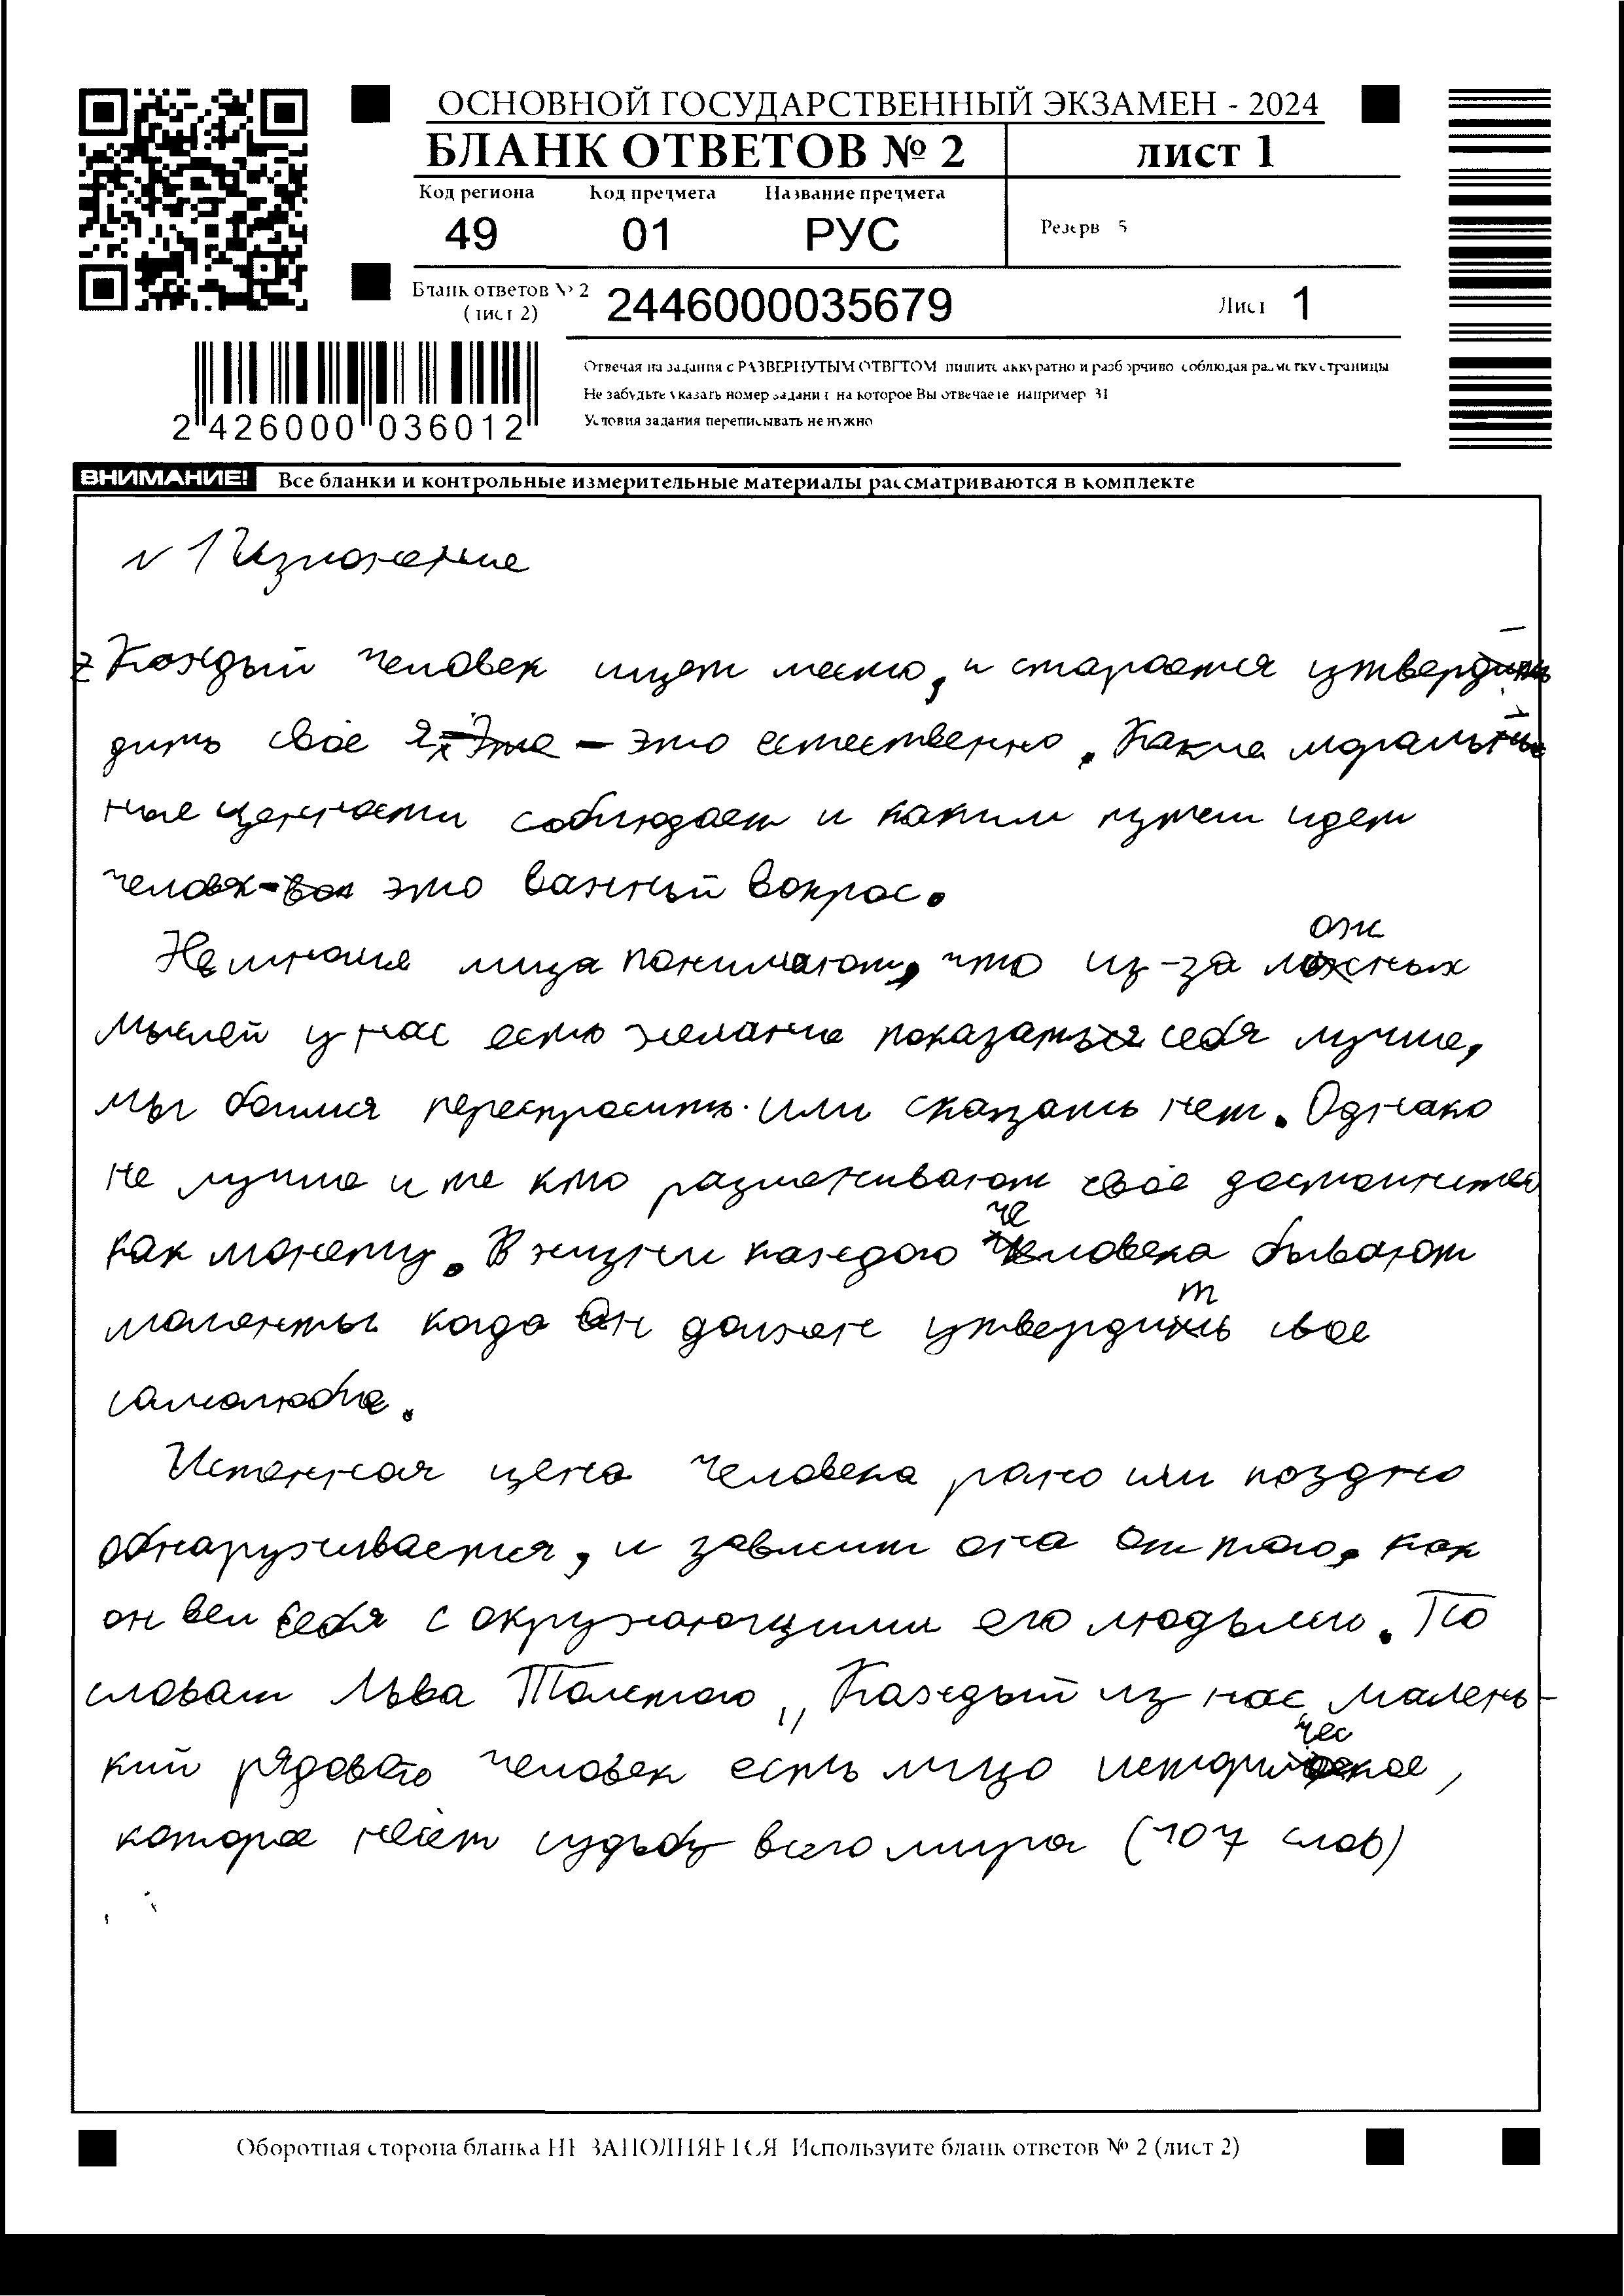 ОСНОВНОЙ ГОСУДАРСТВЕННЫЙ ЭКЗАМЕН - 2024
БЛАНК ОТВЕТОВ № 2 ЛИСТ 1
Код региона Код предмета Название предмета
49 01 РУС Резерв 5
Бланк ответов № 2 (лист 2) 2446000035679 Лист 1
Отвечая на задания с РАЗВЕРНУТЫМ ОТВЕТОМ пишите аккуратно и разборчиво соблюдая разметку страницы
Не забудьте указать номер задания на которое Вы отвечаете например 31
Условия задания переписывать не нужно
2 426000 036012
ВНИМАНИЕ! Все бланки и контрольные измерительные материалы рассматриваются в комплекте
№ 1 Изложение
Каждый человек ищет место, и старается утвер-
дить своё я – это естественно. Какие мораль-
ные ценности соблюдает и каким путем идет
человк - это важный вопрос.
Немногие лица понимают, что из-за ложных
мыслей у нас есть желание показать себя лучше,
мы боимся переспросить или сказать нет. Однако
не лучше и те кто разменивают своё достоинство
как монету. В жизни каждого человека бывают
моменты когда он должен утвердить свое
самолюбие.
Истенная цена человека рано или поздно
обнаруживается, и зависит она от того, как
он вел себя с окружающими его людьми. По
словам Льва Толстого ,, Каждый из нас малень-
кий рядовой человек есть лицо историческое,
которое несёт судьбу всего мира (107 слов)
Оборотная сторона бланка НЕ ЗАПОЛНЯЕТСЯ Используйте бланк ответов № 2 (лист 2)